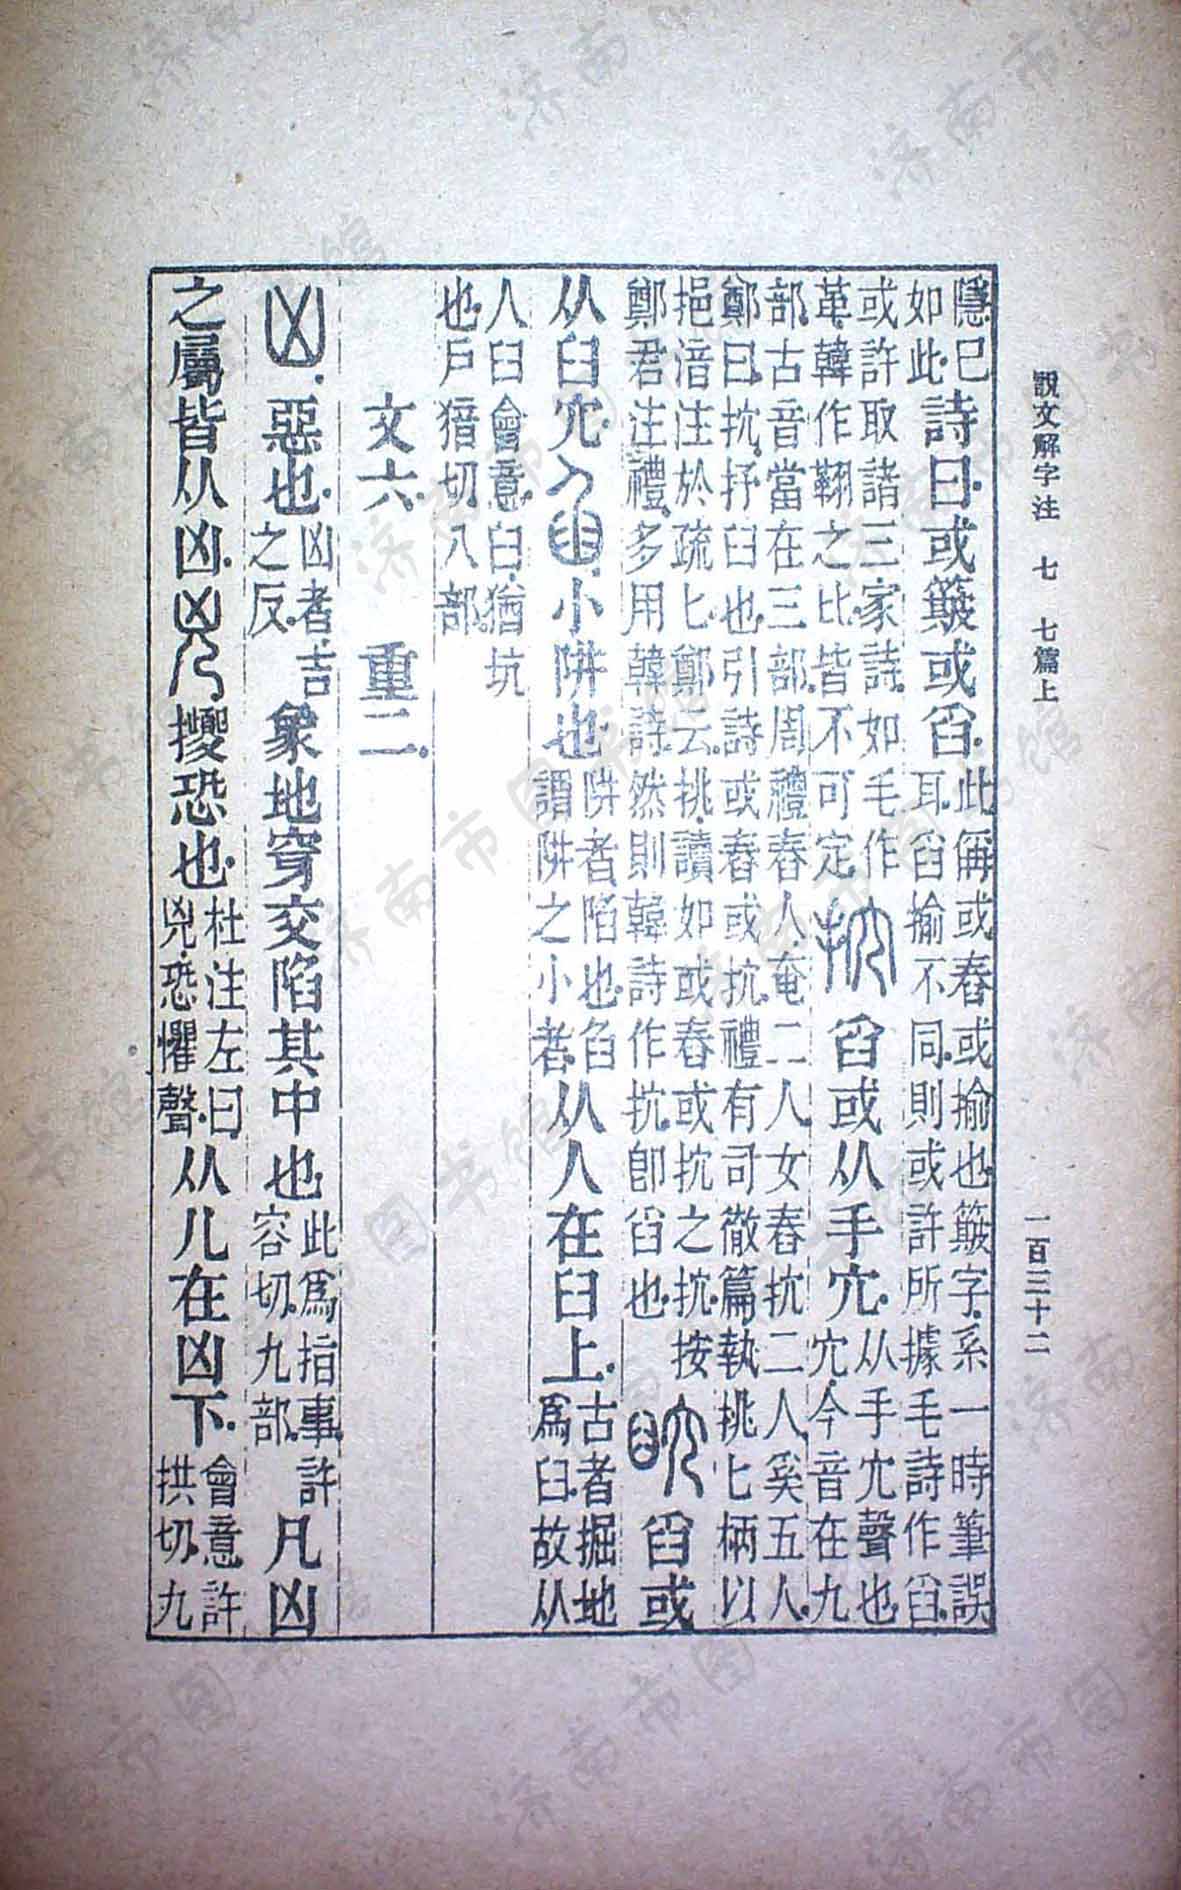 說文解字注 七 七篇上 一百三十二
隱巳
如此
詩曰或簸或舀
此偁或舂或揄也簸字系一時筆誤
耳舀揄不同則或許所據毛詩作舀
或許取諸三家詩如毛作
革韓作之比皆不可定
舀或从手宂
从手宂聲也
宂今音在九
部古音當在三部周禮舂人奄二人女舂抭二人奚五人
鄭曰抭抒臼也引詩或舂或抭禮有司徹篇執挑匕柄以
挹湆注於疏匕鄭云挑讀如或舂或抭之抭按
鄭君注禮多用韓詩然則韓詩作抭卽舀也
舀或
从臼宂
小阱也
阱者陷也臽
謂阱之小者
从人在臼上
古者掘地
爲臼故从
人臼會意臼猶坑
也戶切八部
文六 重二
惡也
凶者吉
之反
象地穿交陷其中也
此爲指事許
容切九部
凡凶
之屬皆从凶
擾恐也
杜注左曰
兇恐懼聲
从儿在凶下
會意許
拱切九